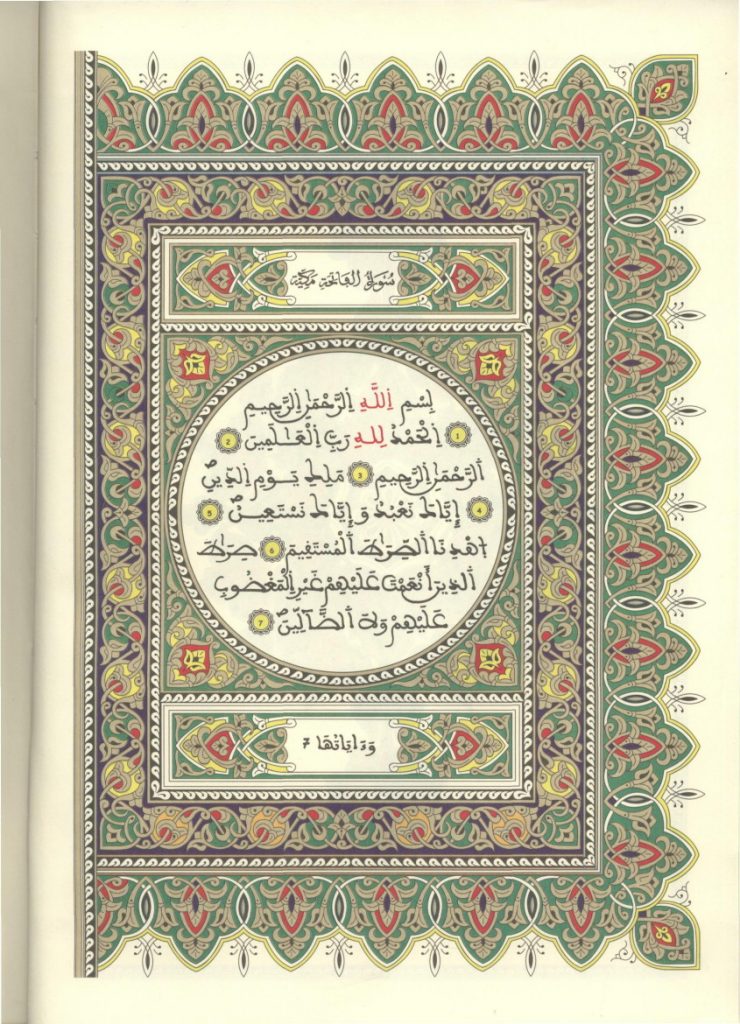 سُورَةُ الْفَاتِحَةِ مَكِّيَّة
بِسْمِ اِللَّهِ اِلرَّحْمَٰنِ اِلرَّحِيمِ
1 اِلْحَمْدُ لِلهِ رَبِّ اِلْعَٰلَمِينَ 2
اَلرَّحْمَٰنِ اِلرَّحِيمِ 3 مَلِكِ يَوْمِ اِلدِّينِ
4 إِيَّاكَ نَعْبُدُ وَإِيَّاكَ نَسْتَعِينُ 5
اَهْدِنَا اَلصِّرَٰطَ اَلْمُسْتَقِيمَ 6 صِرَٰطَ
اَلذِينَ أَنْعَمْتَ عَلَيْهِمْ غَيْرِ اِلْمَغْضُوبِ
عَلَيْهِمْ وَلَا اَلضَّآلِّينَ 7
وءاياتها 7